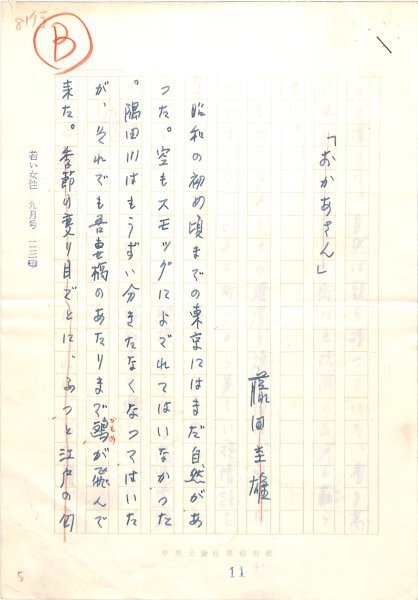 8175
B
「おかあさん」
藤田圭雄
昭和の初め頃までの東京にはまだ自然があ
った。空もスモッグによごれてはいなかった
。隅田川はもうずい分きたなくなってはいた
が、それでも吾妻橋のあたりまで鷗が飛んで
かもめ
来た。季節の変り目ごとに、ふっと江戸の匂
若い女性 九月号
中央公論社原稿用紙
11
5